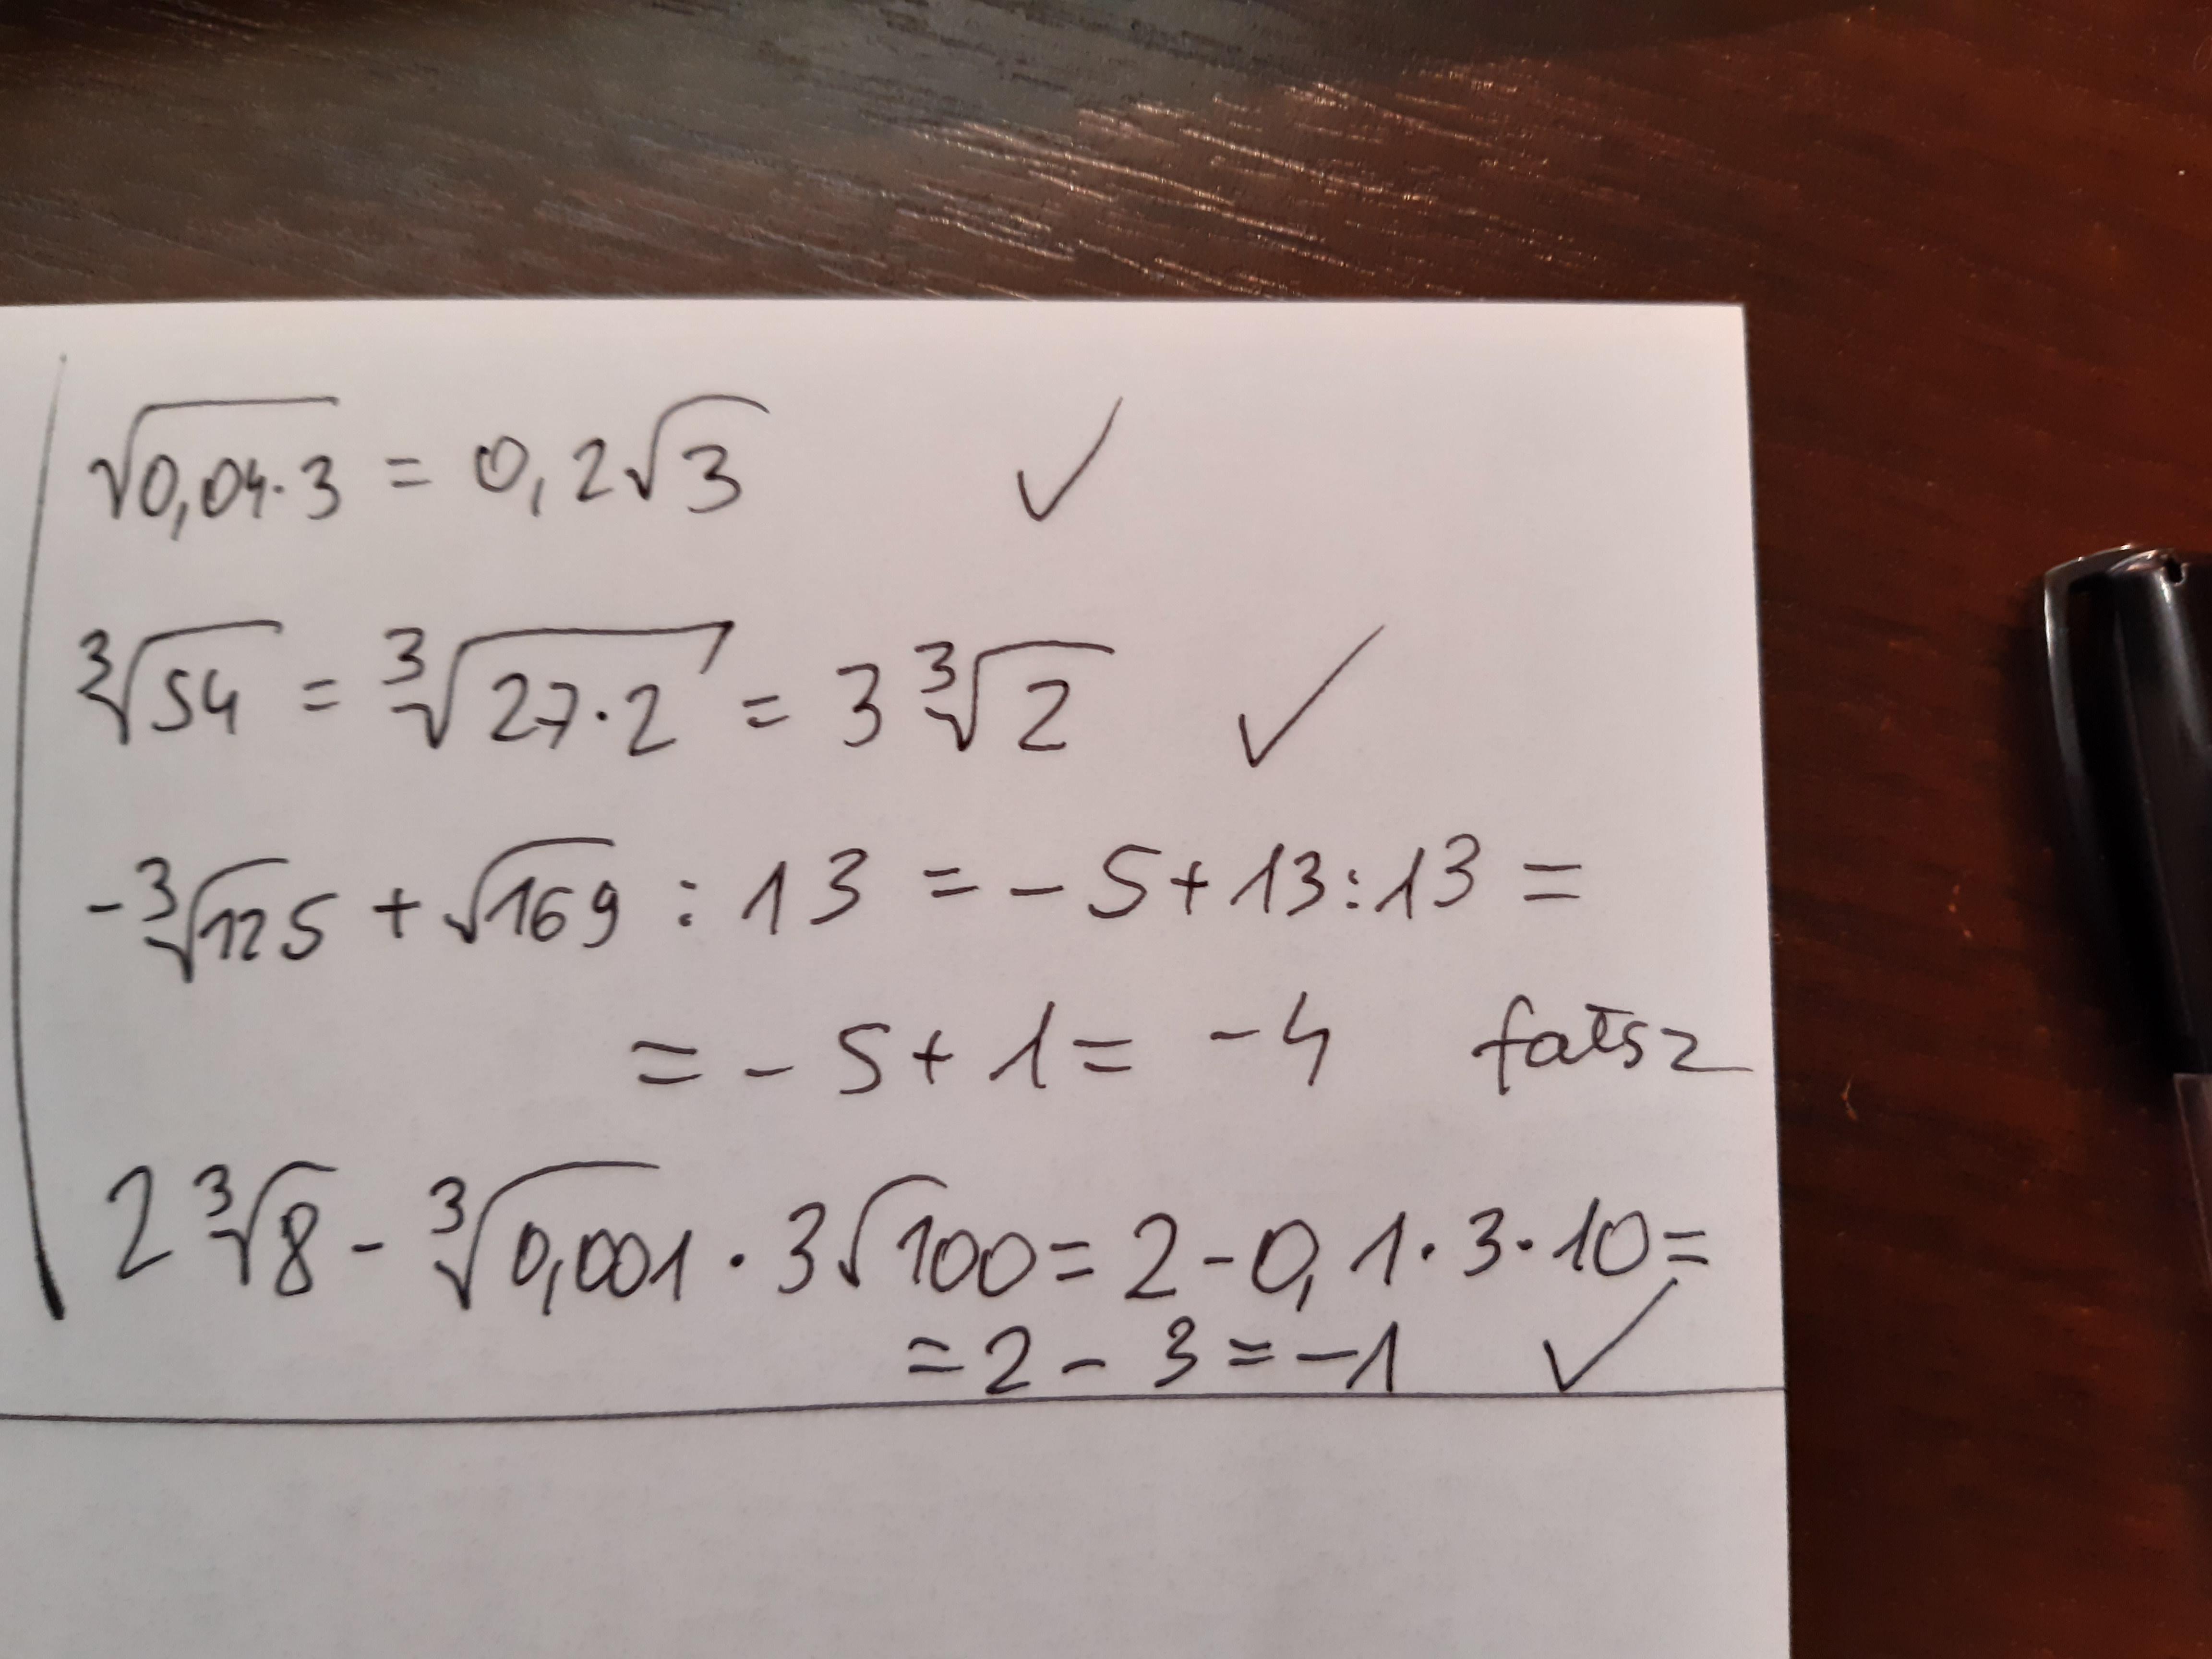 √0,04·3 = 0,2√3 ✓
³√54 = ³√27·2 = 3 ³√2 ✓
-³√125 + √169 : 13 = - 5 + 13 : 13 =
= - 5 + 1 = - 4 fałsz
2 ³√8 - ³√0,001 · 3√100 = 2 - 0,1 · 3 · 10 =
= 2 - 3 = -1 ✓